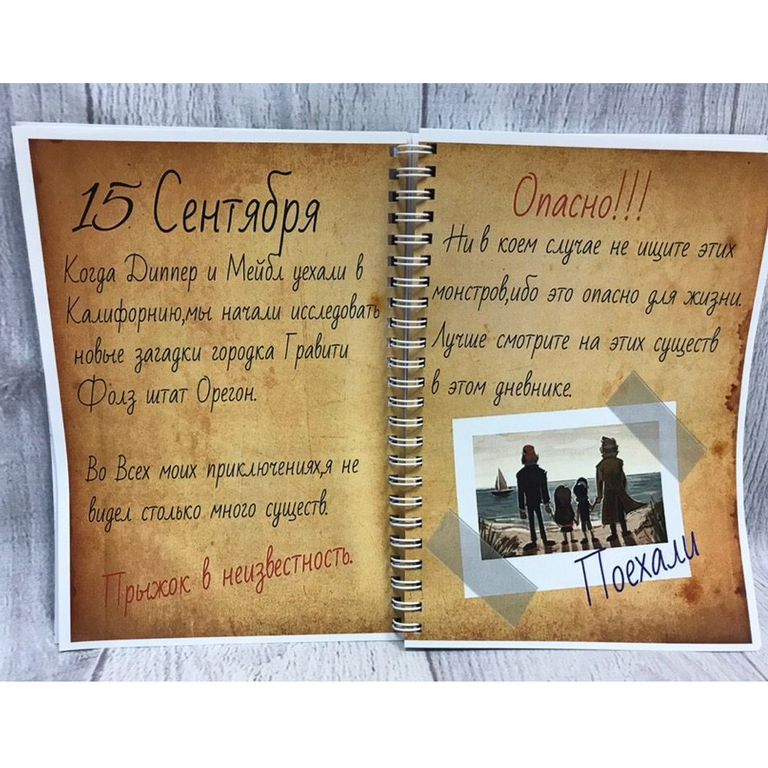 15 Сентября
Когда Диппер и Мейбл уехали в
Калифорнию,мы начали исследовать
новые загадки городка Гравити
Фолз штат Орегон.
Во Всех моих приключениях,я не
видел столько много существ.
Прыжок в неизвестность.
Опасно!!!
Ни в коем случае не ищите этих
монстров,ибо это опасно для жизни.
Лучше смотрите на этих существ
в этом дневнике.
Поехали